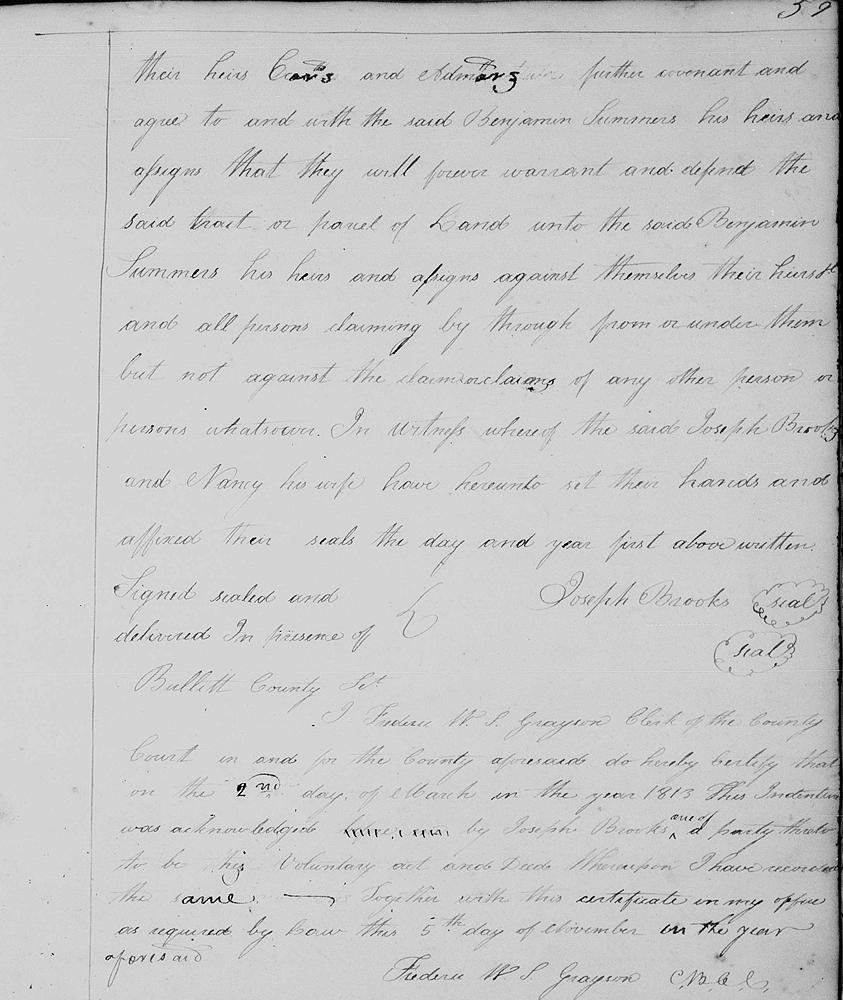 59
their heirs and further covenant and
agree to and with the said Benjamin Summers his heirs and
assigns that they will forever warrant and defend the
said tract or parcel of Land unto the said Benjamin
Summers his heirs and assigns against themselves their heirs &c
and all persons claiming by through from or under them
but not against the claim or claims of any other person or
persons whatsoever. In Witness whereof the said Joseph Brooks
and Nancy his wife have hereunto set their hands and
affixed their seals the day and year first above written.
Signed sealed and Joseph Brooks seal
delivered In presence of seal
Bullitt County Sct
I Frederic W. S. Grayson Clerk of the County
Court in and for the County aforesaid do hereby Certify that
on the 2nd day of March in the year 1813 This Indenture
was acknowledged by Joseph Brooks one of a party thereto
to be his Voluntary act and Deed Whereupon I have recorded
the same Together with this certificate in my office
as required by Law this 5th day of November in the year
aforesaid
Frederic W. S. Grayson C.B.C.C.